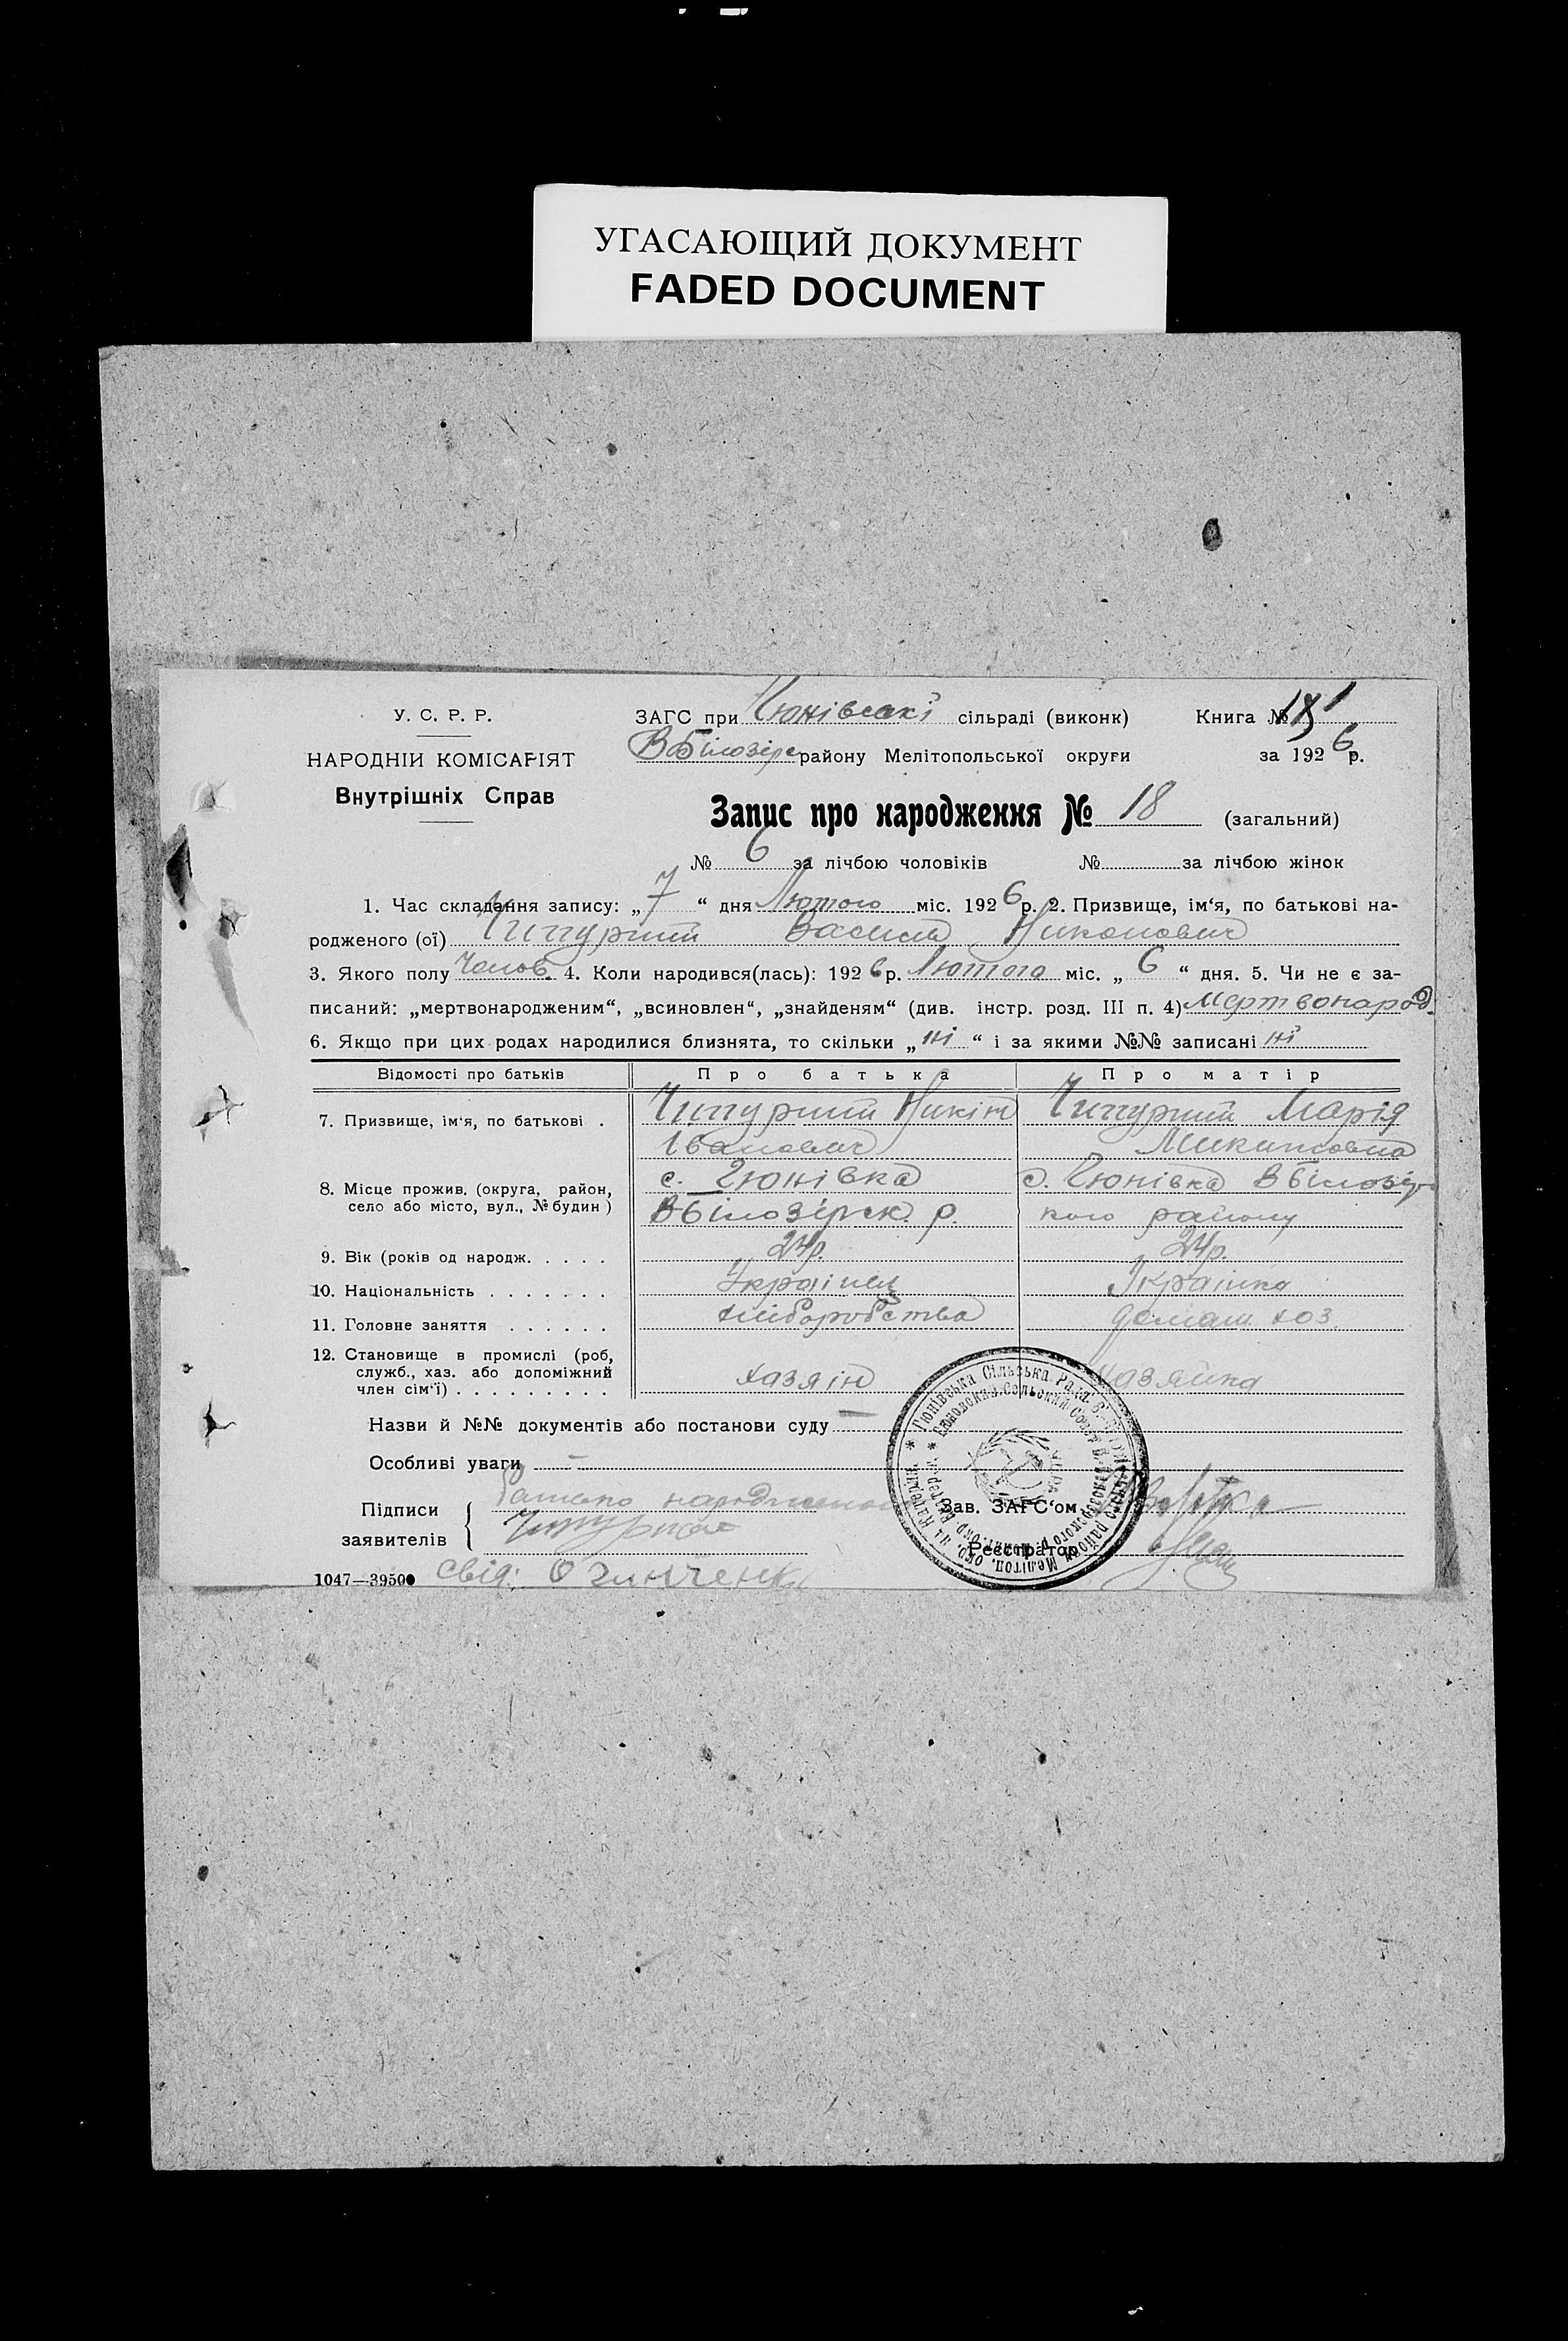 УГАСАЮЩИЙ ДОКУМЕНТ
FADED DOCUMENT
У. С. Р. Р.
НАРОДНІЙ КОМІСАРІЯТ
Внутрішніх Справ
ЗАГС при Гюнівскі сільраді (виконк)
Книга №
ВБілозірс району Мелітопольської округи
за 1926 р.
Запис про народження № 18 (загальний)
№ 6 за лічбою чоловіків № за лічбою жінок
1. Час складання запису: „7“ дня Лютого міс. 1926 р. 2. Призвище, ім‘я, по батькові на-
родженого (ої) Чипурний Василь Никонович
3. Якого полу Чолов. 4. Коли народився(лась): 1926 р. Лютого міс. „6“ дня. 5. Чи не є за-
писаний: „мертвонародженим“, „всиновлен“, „знайденям“ (див. інстр. розд. III п. 4) Мертвонарод.
6. Якщо при цих родах народилися близнята, то скільки „ні“ і за якими №№ записані ні
Відомості про батьків Про батька Про матір
7. Призвище, ім‘я, по батькові . Чипурний Никін Чипурний Марія
Іванович Микитовна
8. Місце прожив. (округа, район, село або місто, вул., № будин) с. Гюнівка с. Гюнівка ВБілозір
ВБілозірск. р. кого району
9. Вік (років од народж. . . . . 24р. 24р.
10. Національність . . . . . . . Українец Українка
11. Головне заняття . . . . . . хліборобства домаш. хоз.
12. Становище в промислі (роб, служб., хаз. або допоміжний член сім‘ї) . . . . . . . . . хазяін хазяйка
Назви й №№ документів або постанови суду —
Особливі уваги —
Підписи заявителів
Чипурной
Зав. ЗАГС‘ом
Реєстратор
1047—39500 свід: Огинченк